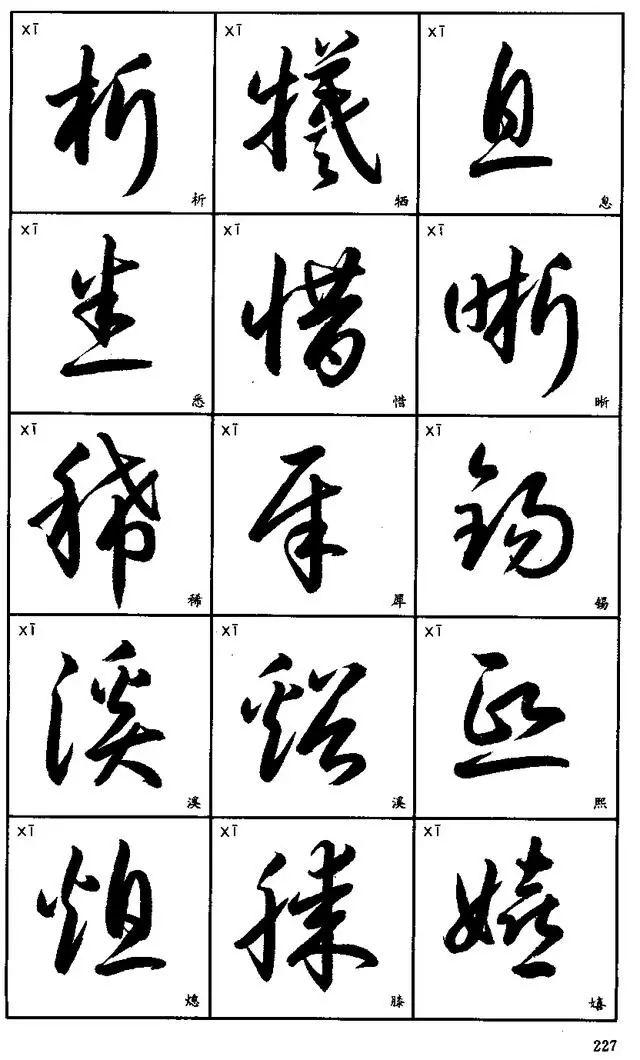 xī xī xī
析 犧 息
析 牺 息
xī xī xī
悉 惜 晰
悉 惜 晰
xī xī xī
稀 犀 锡
稀 犀 锡
xī xī xī
溪 谿 熙
溪 溪 熙
xī xī xī
熄 膝 嬉
熄 膝 嬉
227